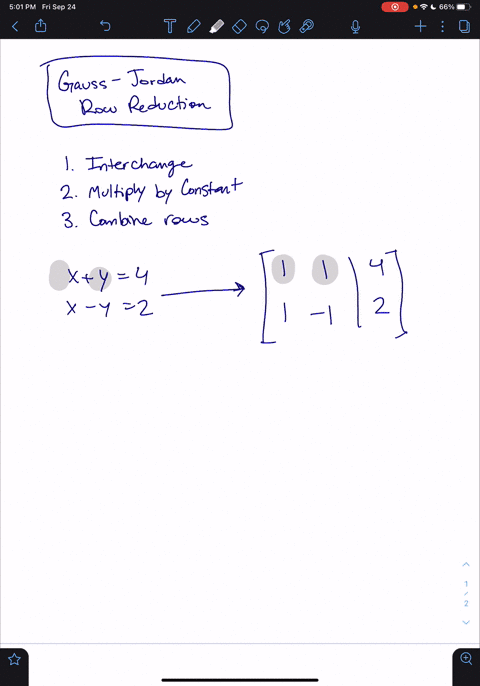 5:01 PM Fri Sep 24
66%
Gauss - Jordan
Row Reduction
1. Interchange
2. Multiply by Constant
3. Combine rows
x + y = 4
x - y = 2
1 1 | 4
1 -1 | 2
1
/
2